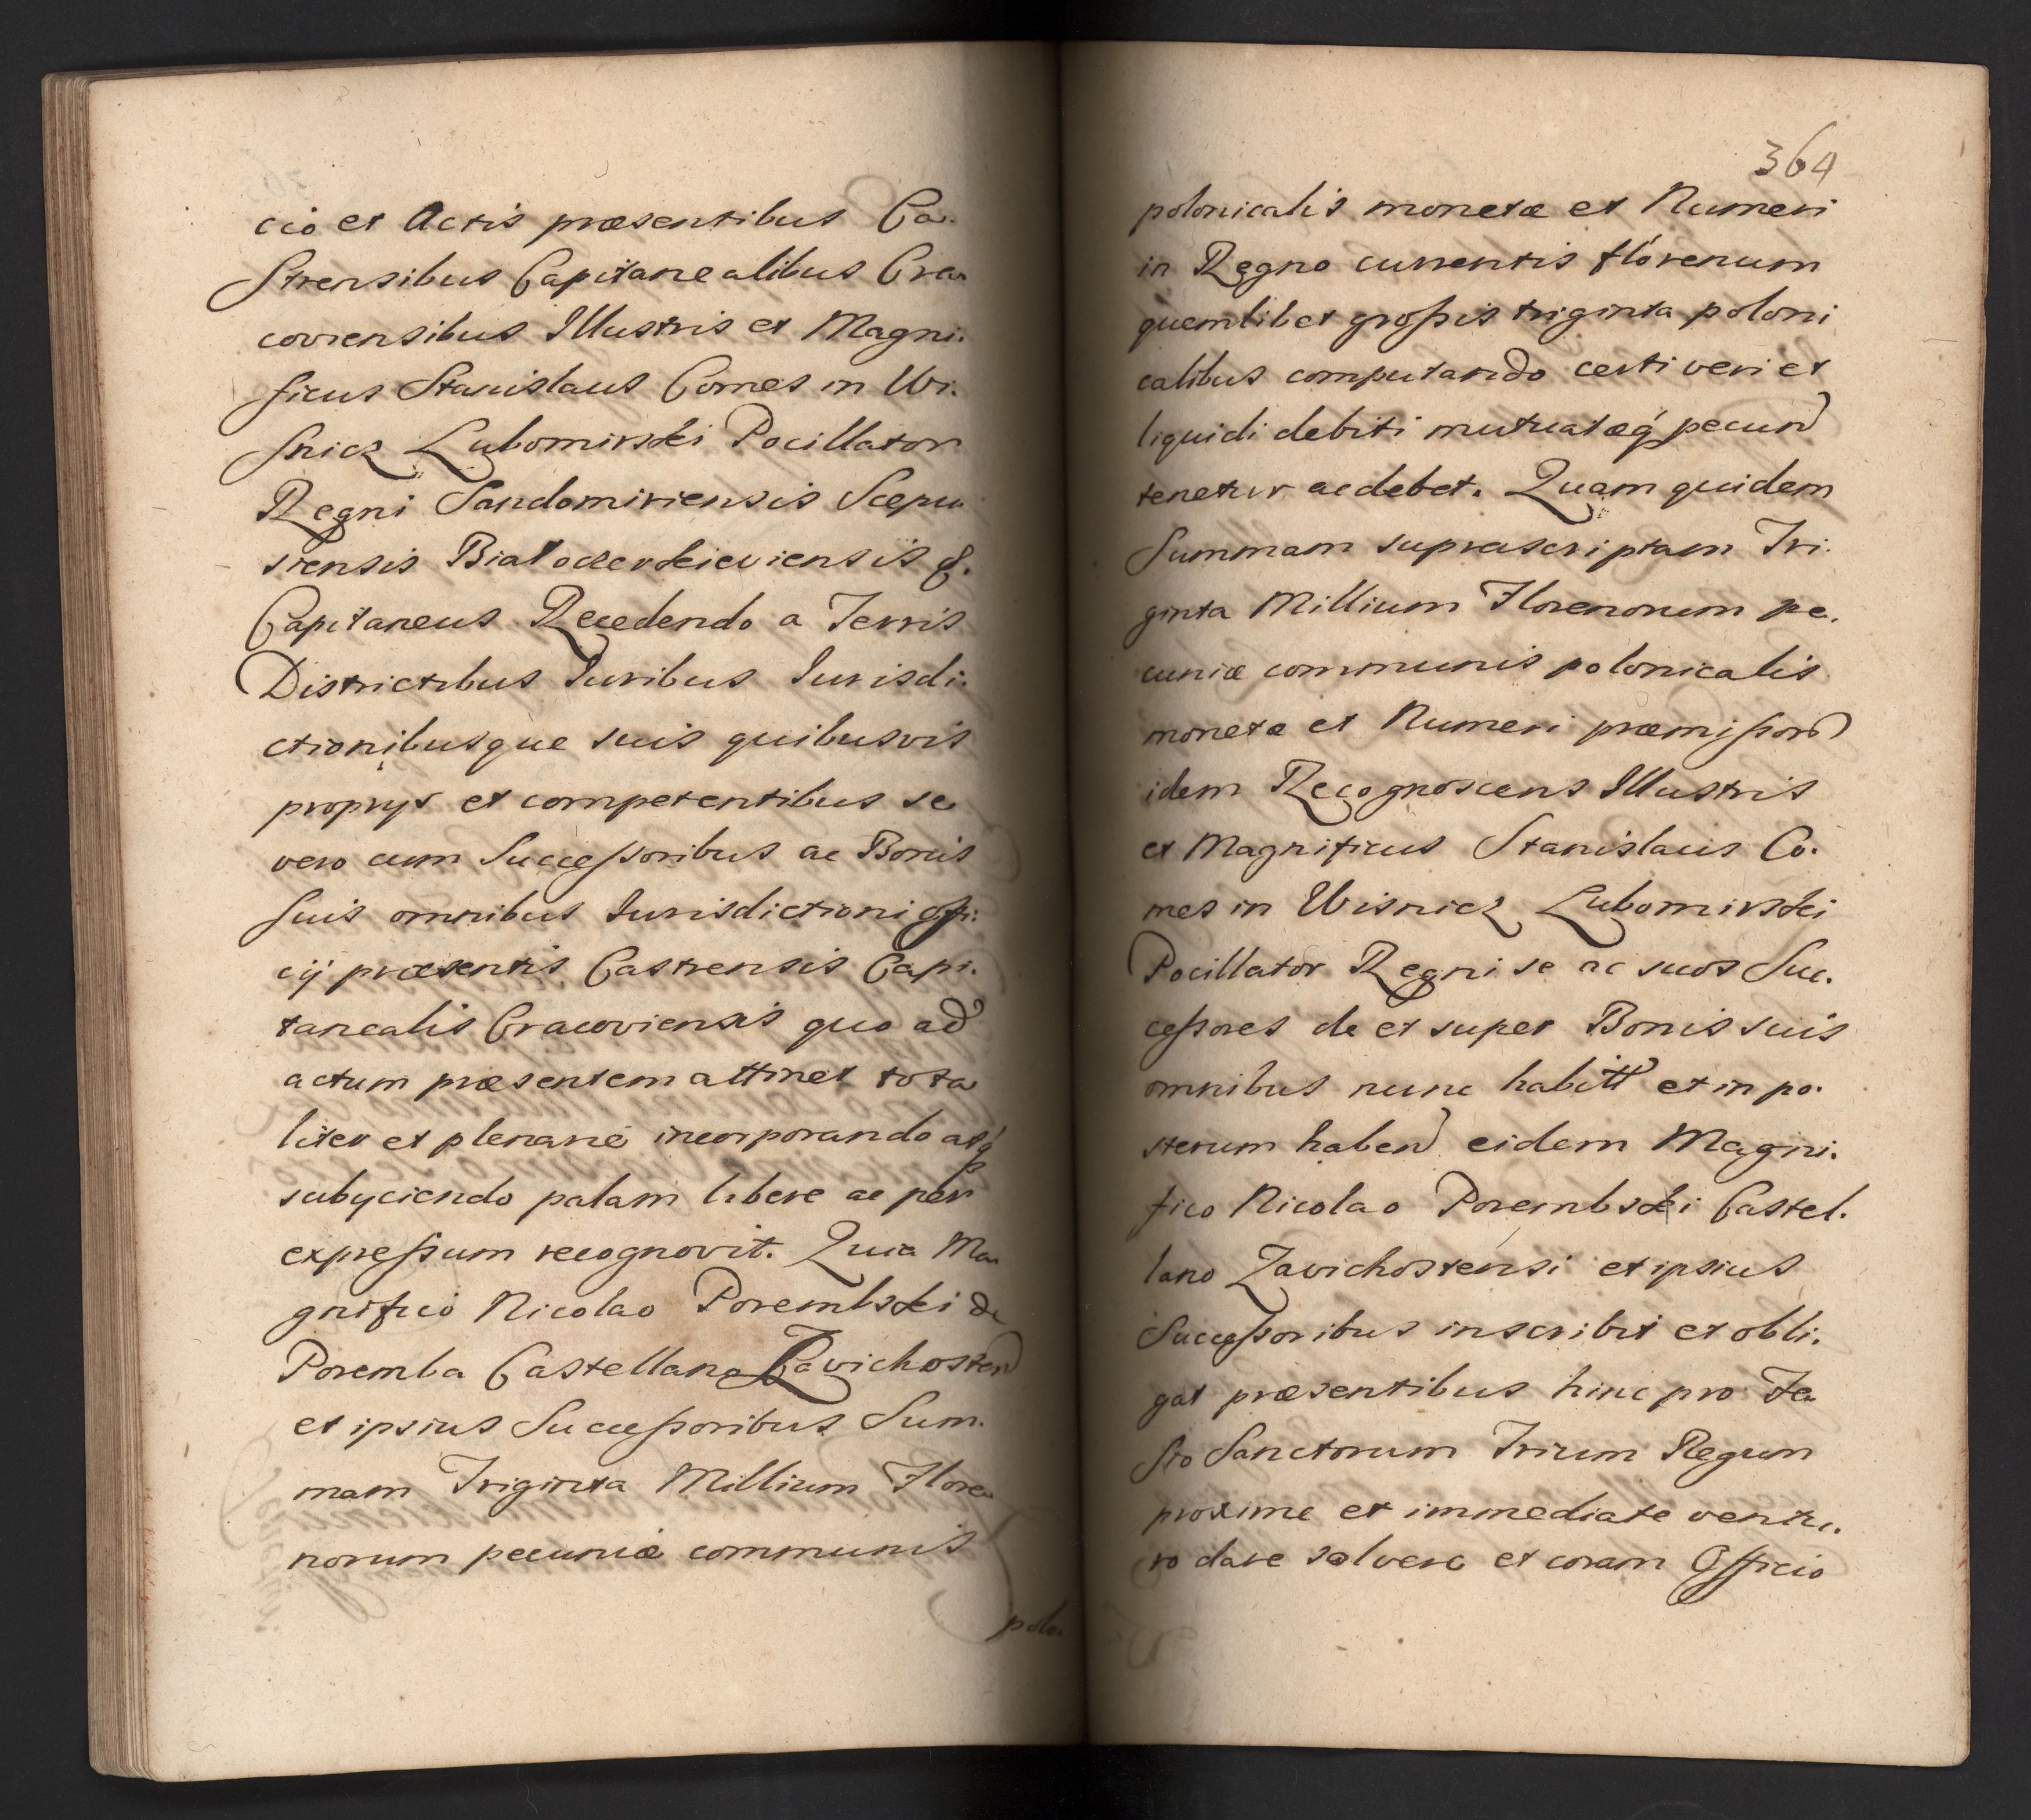 cio et Actis præsentibus Ca.
strensibus Capitanealibus Cra
coviensibus Illustris et Magni.
ficus Stanislaus Comes in Wi.
snicz Lubomirski Pocillator
Regni Sandomiriensis Scepu
siensis Białocerkieviensis &.
Capitaneus Recedendo a Terris
Districtibus Iuribus Iurisdi.
ctionibusque suis quibusvis
proprijs et competentibus se
vero cum Successoribus ac Bonis
suis omnibus Iurisdictioni offi.
cij præsentis Castrensis Capi.
tanealis Cracoviensis quo ad
actum præsentem attinet tota
liter et plenarie incorporando atq́
subyciendo palam libere ac per
expressum recognovit. Quia Ma
gnifico Nicolao Porembski de
Poremba Castellano Zavichosten
et ipsius Successoribus Sum.
mam Triginta Millium Flore
norum pecuniæ communis
polo.
364
polonicalis monetæ et Numeri
in Regno currentis florenum
quemlibet grossis triginta poloni
calibus computando certi veri et
liquidi debiti mutuatæq́ pecun
tenetur ac debet. Quam quidem
Summam suprascriptam Tri.
ginta Millium Florenorum pe.
cuniæ communis polonicalis
monetæ et Numeri præmissor
idem Recognoscens Illustris
et Magnificus Stanislaus Co.
mes in Wisnicz Lubomirski
Pocillator Regni se ac suos Suc.
cessores de et super Bonis suis
omnibus nunc habitt et in po.
sterum haben eidem Magni.
fico Nicolao Porembski Castel.
lano Zavichostensi et ipsius
Successoribus inscribit et obli.
gat præsentibus hinc pro Fe
sto Sanctorum Trium Regum
proxime et immediate ventu.
ro dare solvere et coram Officio